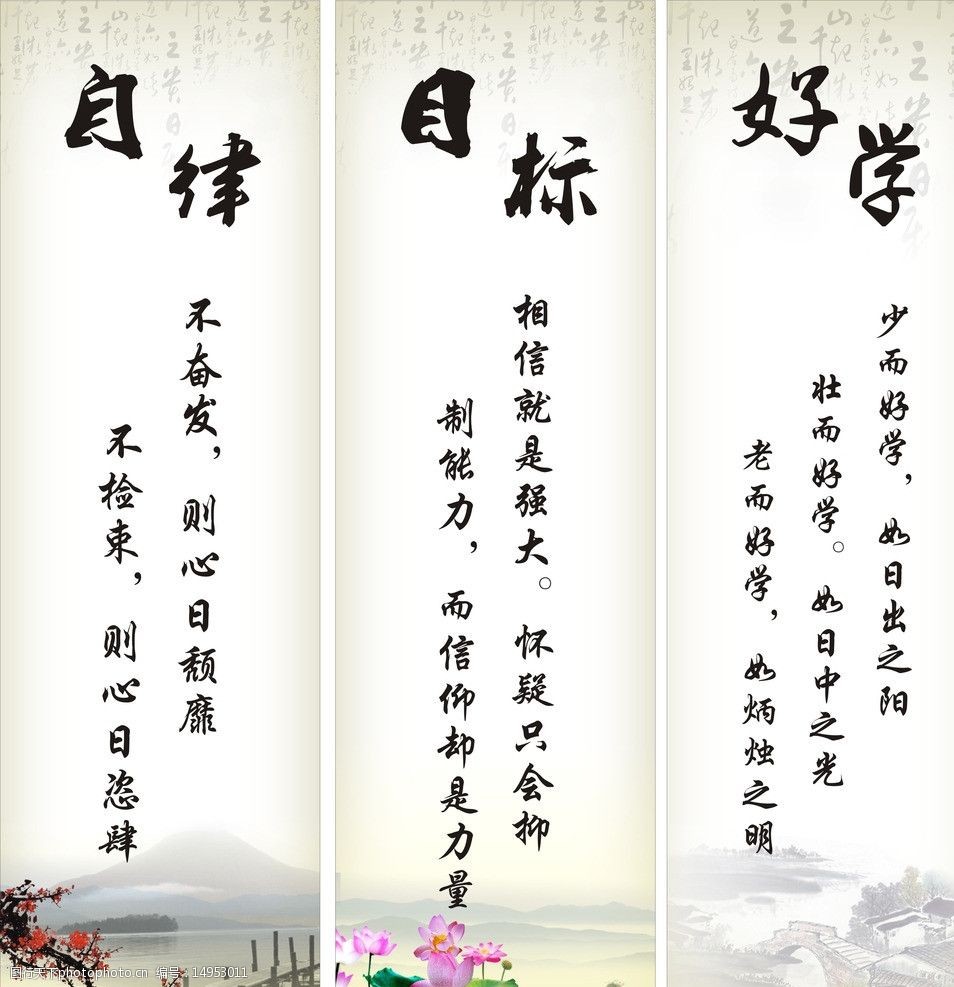 自律
不奋发，则心日颓靡
不检束，则心日恣肆
目标
相信就是强大。怀疑只会抑
制能力，而信仰却是力量
好学
少而好学，如日出之阳
壮而好学。如日中之光
老而好学，如炳烛之明
图行天下photophoto.cn 编号：14953011